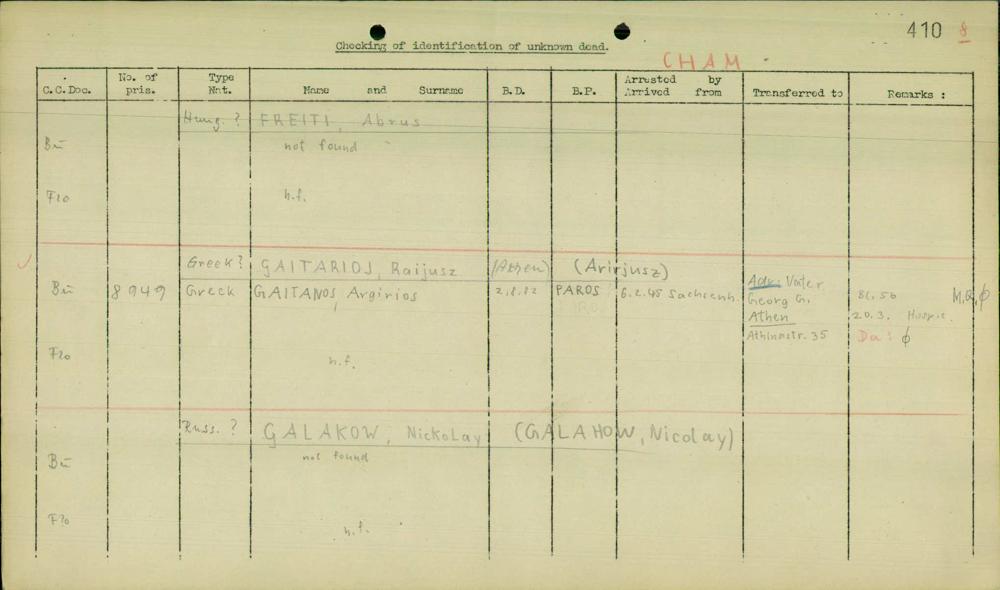 410 8
Checking of identification of unknown dead.
CHAM
C.C.Doc. No. of pris. Type Nat. Name and Surname B.D. B.P. Arrested by Arrived from Transferred to Remarks :
Hung. ? FREITI, Abrus
Bu not found
Flo n.f.
Greek? GAITARIOJ, Raijusz (Athen) (Arirjusz)
Bu 8949 Greck GAITANOS, Argirios 2.8.82 PAROS 6.2.45 Sachsenh.
Adr. Vater
Georg G. Bl. 56 M,B,ϕ
Athen 20.3.
Athinastr. 35 Da: ϕ
Flo n.f.
Russ. ? GALAKOW, Nickolay (GALAHOW, Nicolay)
Bu not found
Flo n.f.